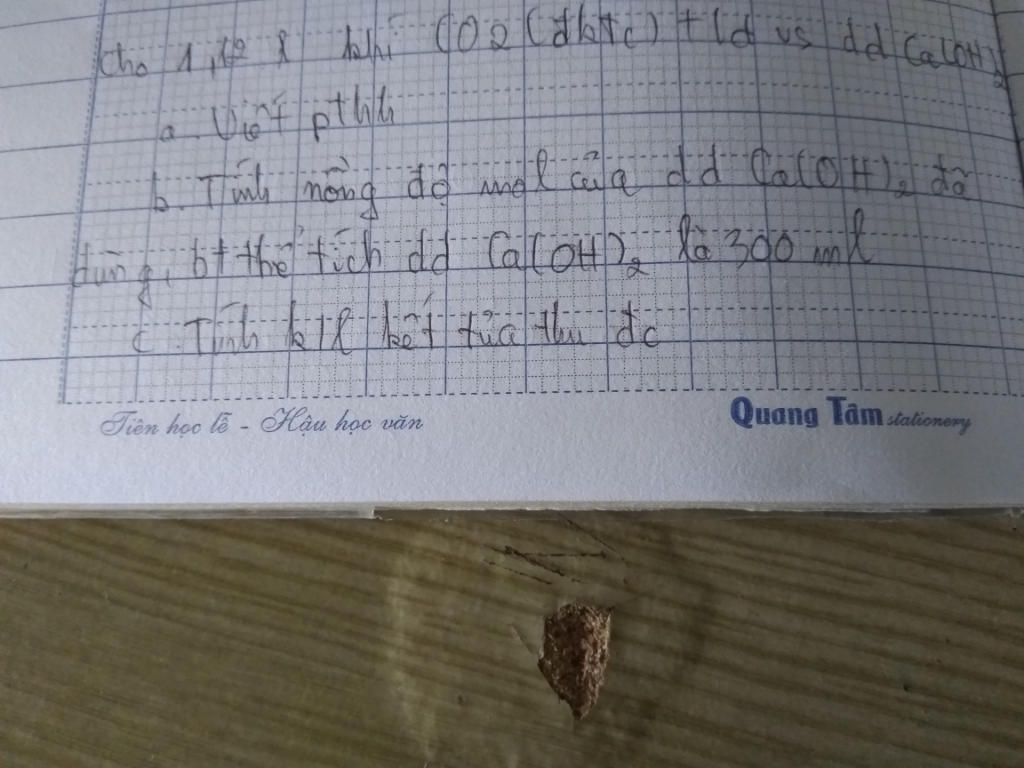 Cho 1,12 l khí CO2 (đktc) + td vs dd Ca(OH)2
a. Viết pthh
b. Tính nồng độ mol của dd Ca(OH)2 đã
dùng, bt thể tích dd Ca(OH)2 là 300 ml
c. Tính klg kết tủa thu đc
Tiên học lễ - Hậu học văn
Quang Tâm stationery